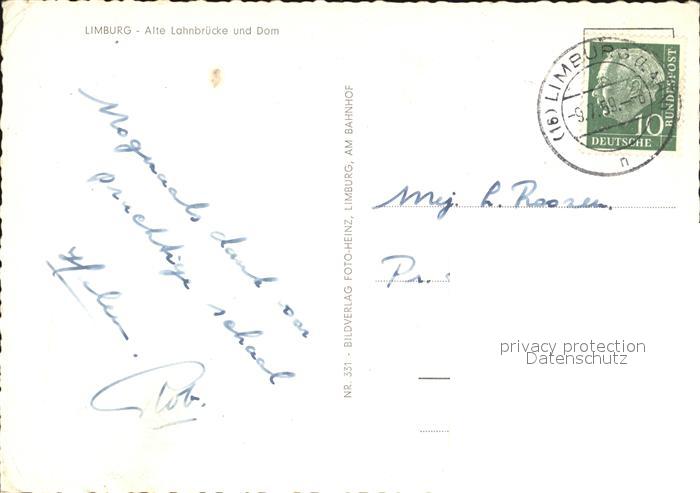 LIMBURG - Alte Lahnbrücke und Dom
Nogmaals dank voor
prachtige schaal
Rob.
NR. 331 - BILDVERLAG FOTO-HEINZ, LIMBURG, AM BAHNHOF
(16) LIMBURG
DEUTSCHE
BUNDESPOST
10
Mej. L. Roozen.
Pr.
privacy protection
Datenschutz